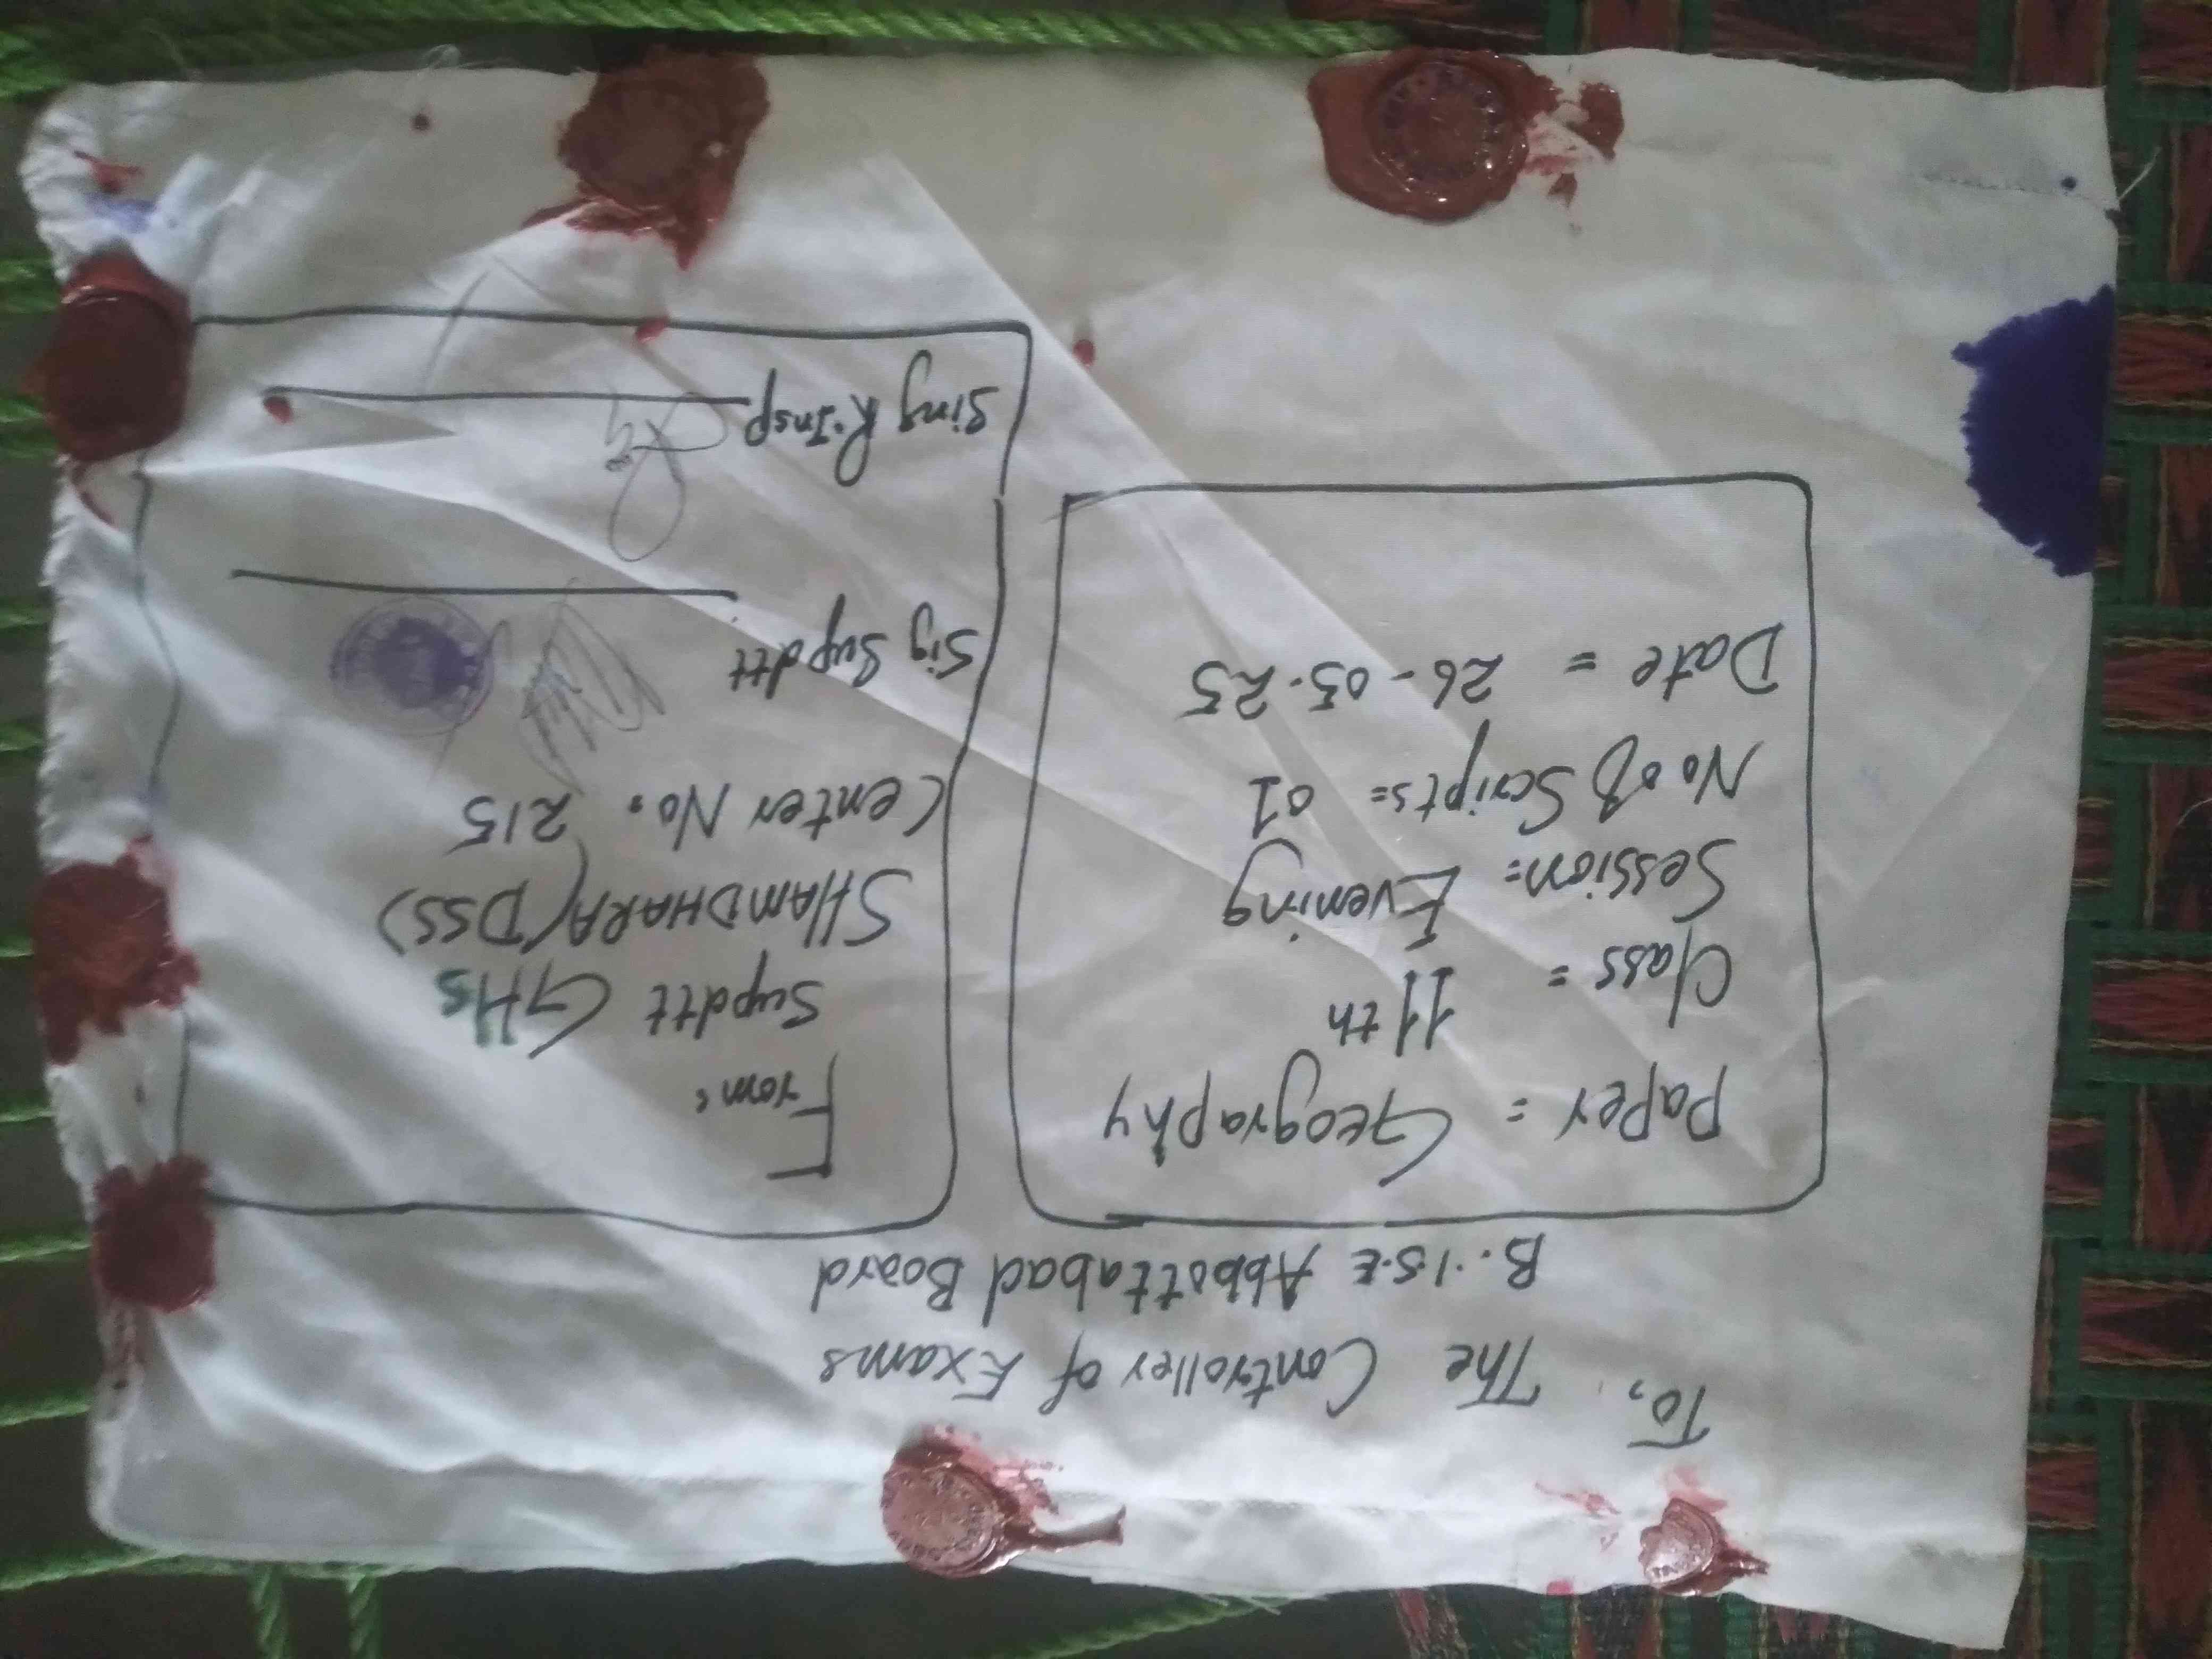 To, The Controller of Exams
B.I.S.E Abbottabad Board
Paper = Geography
Class = 11th
Session = Evening
No of Scripts = 01
Date = 26-05-25
From:
Supdtt GHS
SHAMDHARA (DSS)
Center No. 215
Sig Supdtt
Sing R.Insp